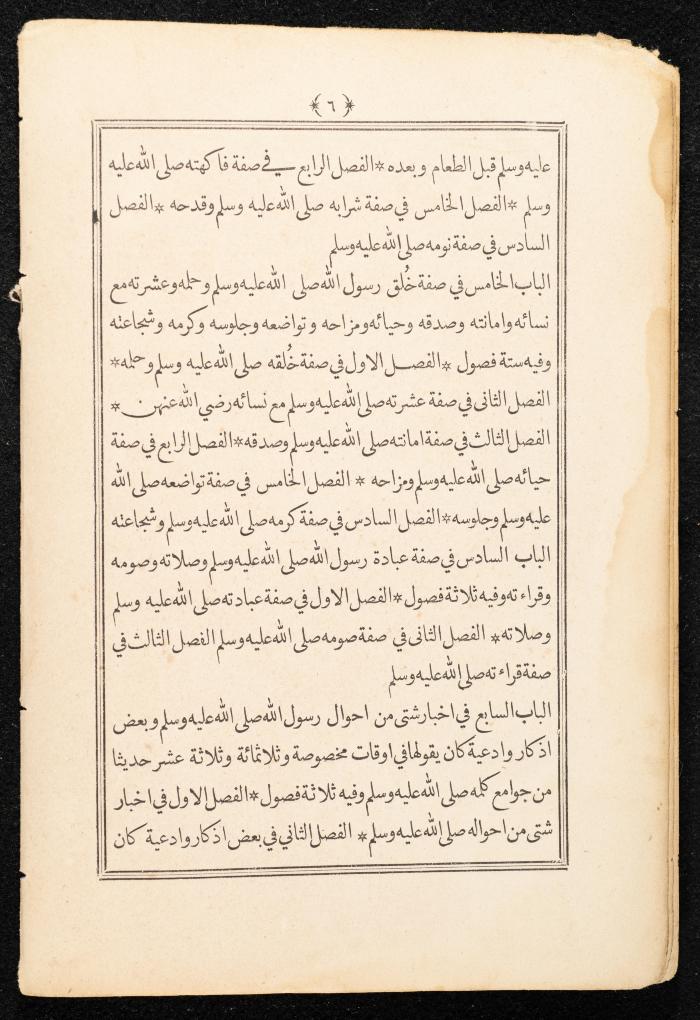 ﴿ ٦ ﴾
عليه وسلم قبل الطعام وبعده * الفصل الرابع في صفة فاكهته صلى الله عليه
وسلم * الفصل الخامس في صفة شرابه صلى الله عليه وسلم وقدحه * الفصل
السادس في صفة نومه صلى الله عليه وسلم
الباب الخامس في صفة خُلق رسول الله صلى الله عليه وسلم وحلمه وعشرته مع
نسائه وامانته وصدقه وحيائه ومزاحه وتواضعه وجلوسه وكرمه وشجاعته
وفيه ستة فصول * الفصل الاول في صفة خُلقه صلى الله عليه وسلم وحلمه *
الفصل الثانى في صفة عشرته صلى الله عليه وسلم مع نسائه رضي الله عنهن *
الفصل الثالث في صفة امانته صلى الله عليه وسلم وصدقه * الفصل الرابع في صفة
حيائه صلى الله عليه وسلم ومزاحه * الفصل الخامس في صفة تواضعه صلى الله
عليه وسلم وجلوسه * الفصل السادس في صفة كرمه صلى الله عليه وسلم وشجاعته
الباب السادس في صفة عبادة رسول الله صلى الله عليه وسلم وصلاته وصومه
وقراءته وفيه ثلاثة فصول * الفصل الاول في صفة عبادته صلى الله عليه وسلم
وصلاته * الفصل الثانى في صفة صومه صلى الله عليه وسلم الفصل الثالث في
صفة قراءته صلى الله عليه وسلم
الباب السابع في اخبار شتى من احوال رسول الله صلى الله عليه وسلم وبعض
اذكار وادعية كان يقولها في اوقات مخصوصة وثلاثمائة وثلاثة عشر حديثا
من جوامع كلمه صلى الله عليه وسلم وفيه ثلاثة فصول * الفصل الاول في اخبار
شتى من احواله صلى الله عليه وسلم * الفصل الثاني في بعض اذكار وادعية كان